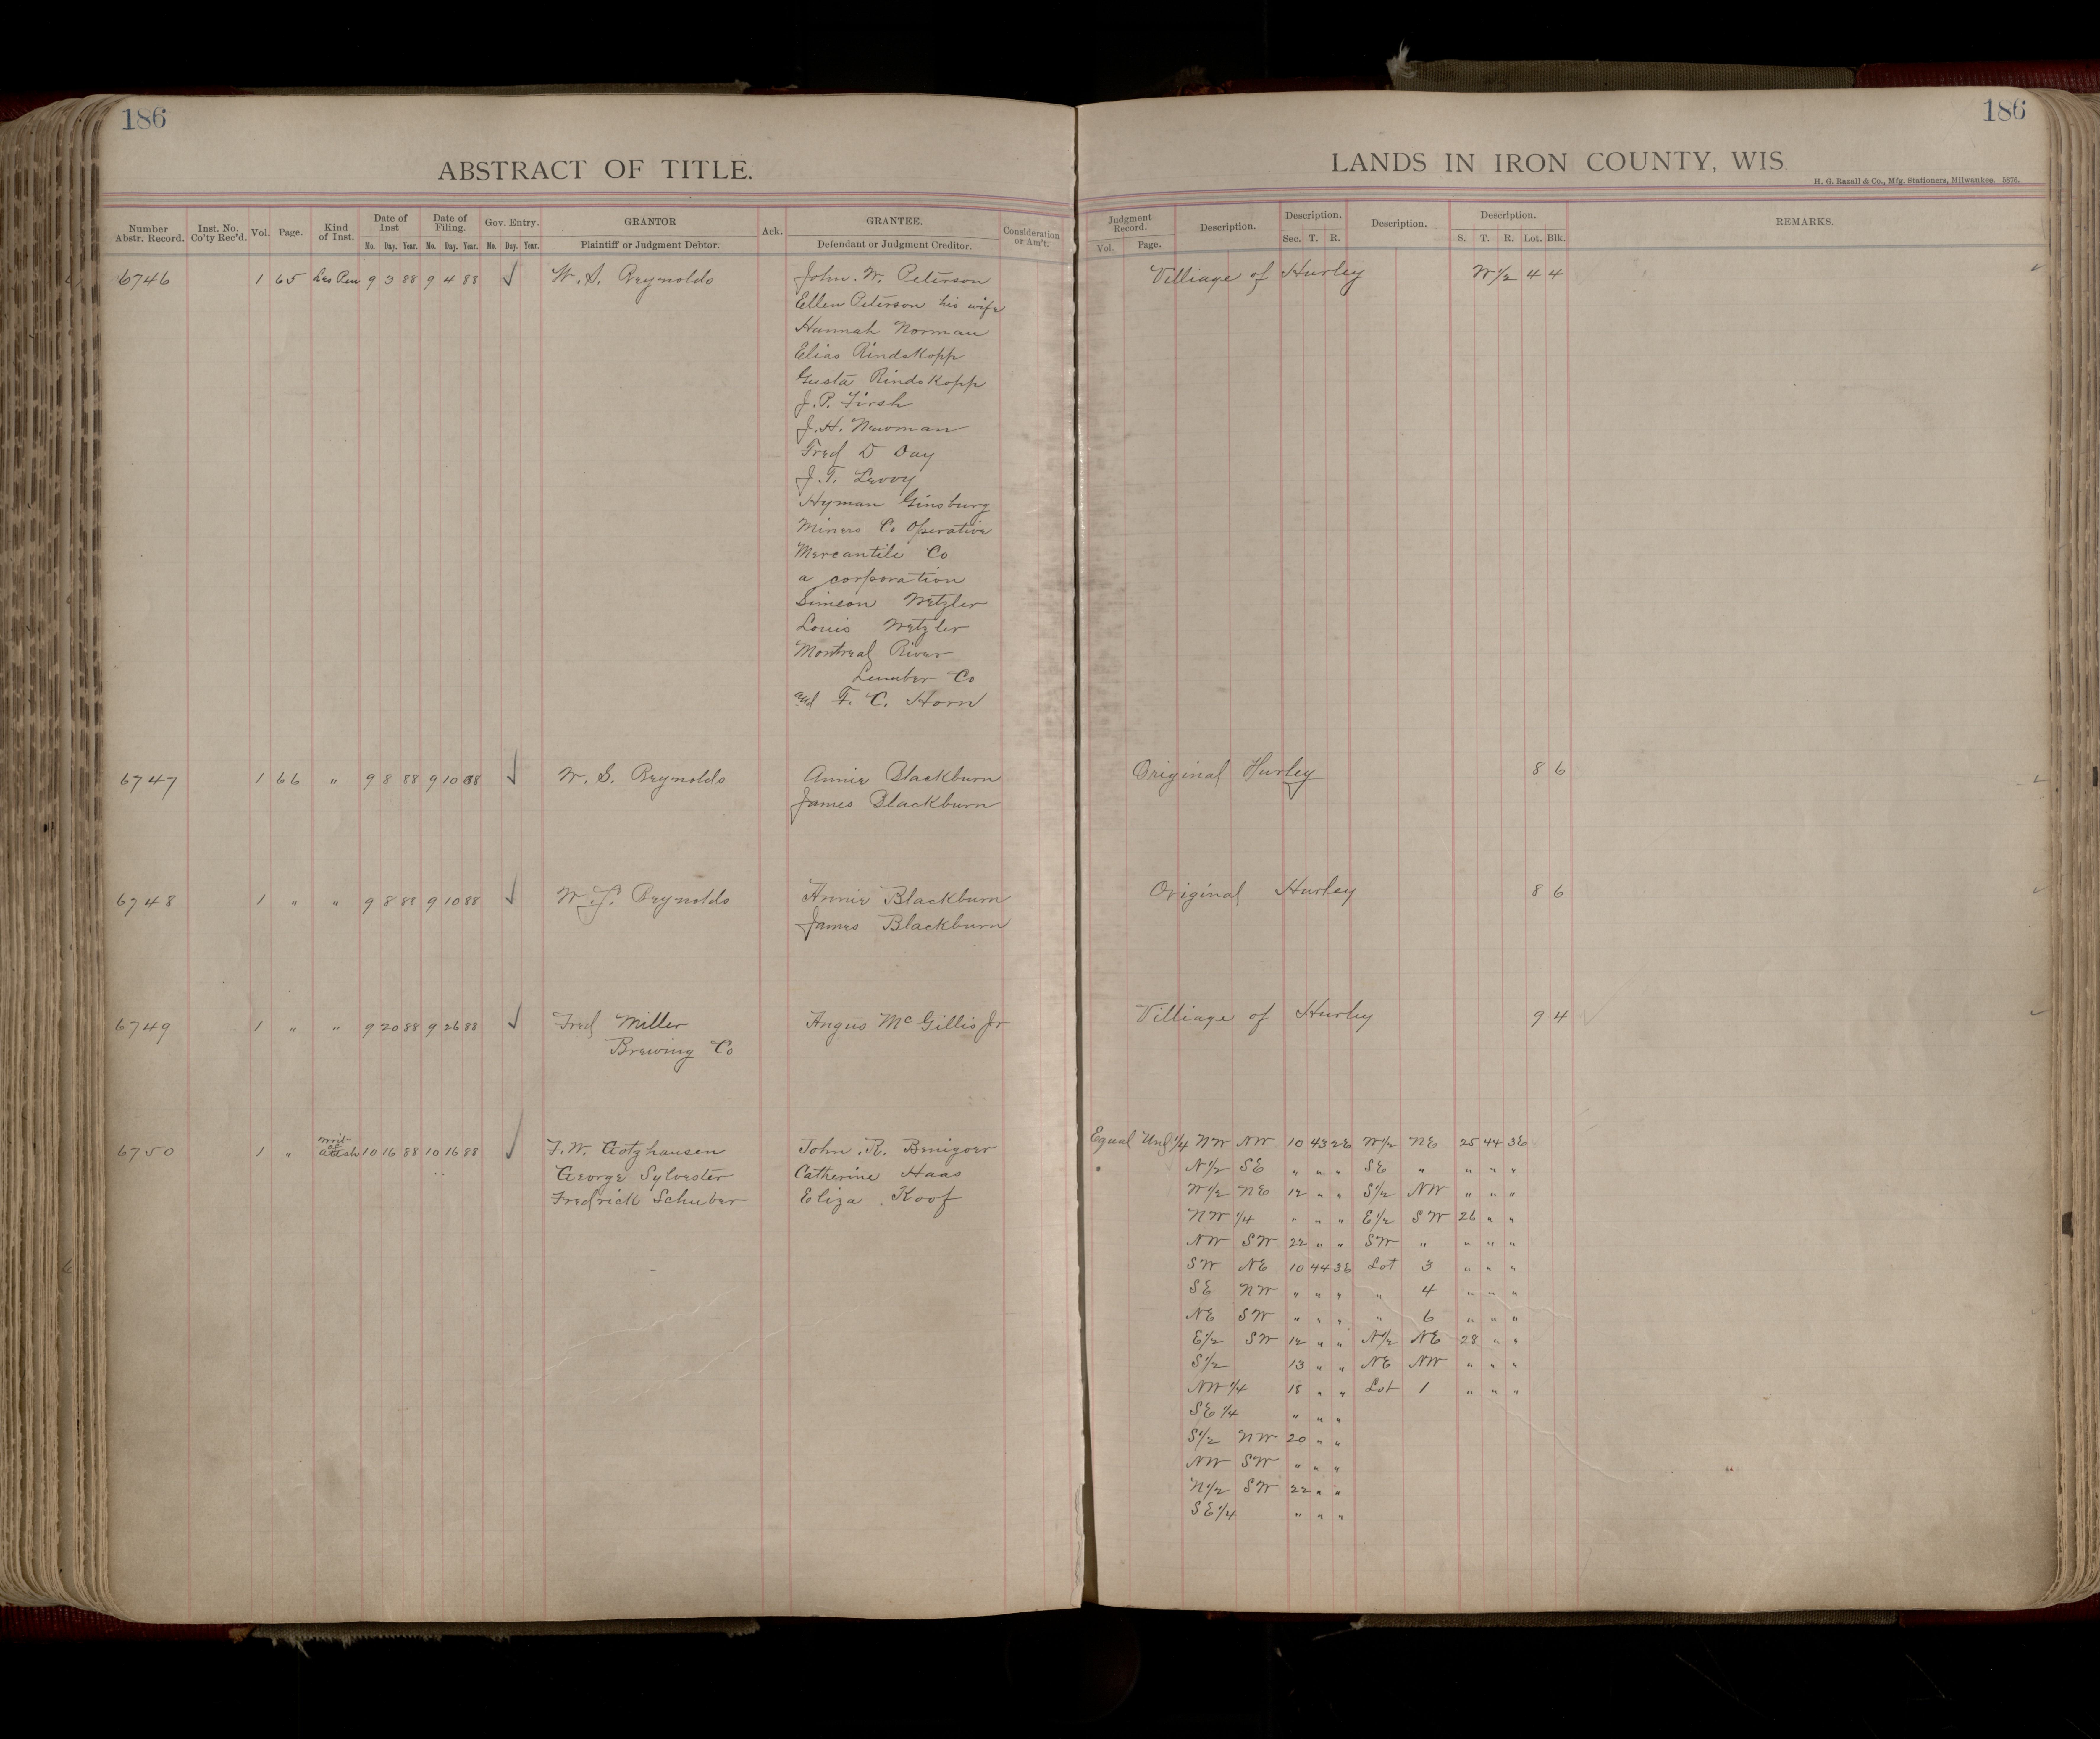 186
ABSTRACT OF TITLE.
Number Abstr. Record. Inst. No. Co'ty Rec'd. Vol. Page. Kind of Inst. Date of Inst No. Day. Year. Date of Filing. No. Day. Year. Gov. Entry. No. Day. Year. GRANTOR Plaintiff or Judgment Debtor. Ack. GRANTEE. Defendant or Judgment Creditor. Consideration or Am't.
6746 1 65 Les Pen 9 3 88 9 4 88 ✓ W. S. Reynolds John. W. Peterson
Ellen Peterson his wife
Hannah Norman
Elias Rindskopp
Gusta Rindskopp
J. P. Firsh
J. H. Newman
Fred D Day
J. T. Levoy
Hyman Ginsburg
Miners Co Operative
Mercantile Co
a corporation
Simeon Wetzler
Louis Wetzler
Montreal River
Lumber Co
and F. C. Horn
6747 1 66 " 9 8 88 9 10 88 ✓ W. S. Reynolds Annie Blackburn
James Blackburn
6748 1 " " 9 8 88 9 10 88 ✓ W. S. Reynolds Annie Blackburn
James Blackburn
6749 1 " " 9 20 88 9 26 88 ✓ Fred Miller Angus McGillis Jr
Brewing Co
6750 1 " Writ of Attach 10 16 88 10 16 88 ✓ F. W. Gotzhausen John. R. Benigoer
George Sylvester Catherine Haas
Fredrick Schuber Eliza Koof
186
LANDS IN IRON COUNTY, WIS.
H. G. Razall & Co., Mfg. Stationers, Milwaukee. 5876.
Judgment Record. Vol. Page. Description. Description. Sec. T. R. Description. Description. S. T. R. Lot. Blk. REMARKS.
Villiage of Hurley W 1/2 4 4
Original Hurley 8 6
Original Hurley 8 6
Villiage of Hurley 9 4
Equal Und 1/4 NW NW 10 43 2E W 1/2 NE 25 44 3E
N 1/2 SE " " " SE " " " "
W 1/2 NE 12 " " S 1/2 NW " " "
NW 1/4 " " " E 1/2 SW 26 " "
NW SW 22 " " SW " " " "
SW NE 10 44 3E Lot 3 " " "
SE NW " " " " 4 " " "
NE SW " " " " 6 " " "
E 1/2 SW 12 " " N 1/2 NE 28 " "
S 1/2 13 " " NE NW " " "
NW 1/4 18 " " Lot 1 " " "
SE 1/4 " " "
S 1/2 NW 20 " "
NW SW " " "
N 1/2 SW 22 " "
SE 1/4 " " "